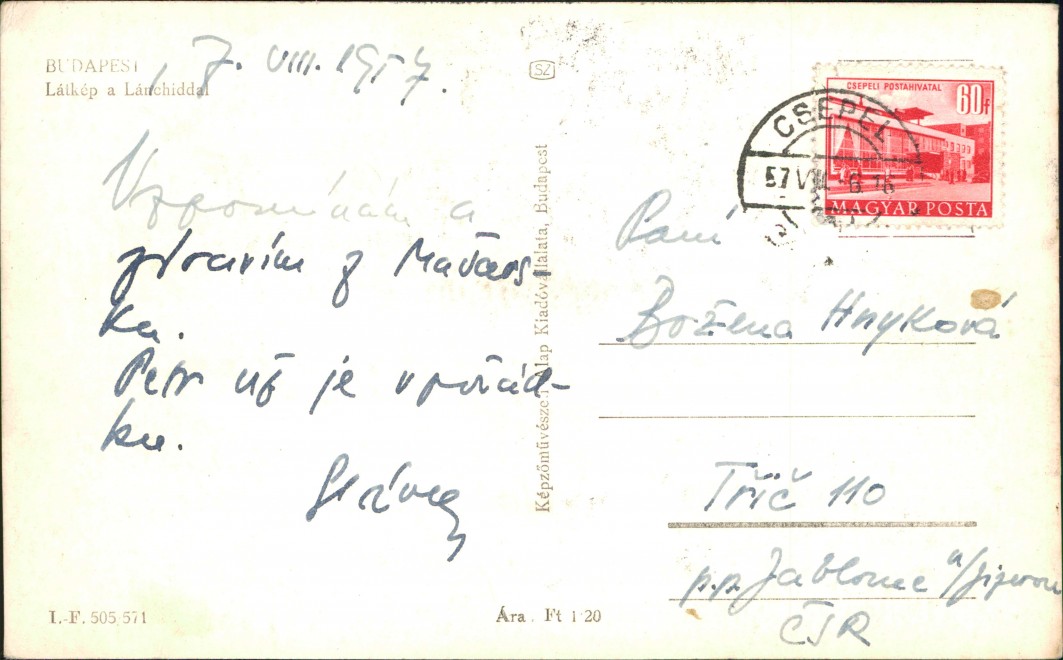 BUDAPEST
Látkép a Lánchiddal
7. VIII. 1957.
Vzpomínám a
zdravím z Maďars-
ka.
Petr už je v pořád-
ku.
SZ
Képzőművészeti Alap Kiadóvállalata, Budapest
CSEPELI POSTAHIVATAL
60f
MAGYAR POSTA
CSEPEL
57 VIII -8 16
Paní
Božena Hnyková
Tříč 110
p.p. Jablonec n/Jizerou
ČSR
I.-F. 505/571
Ára: Ft 1·20